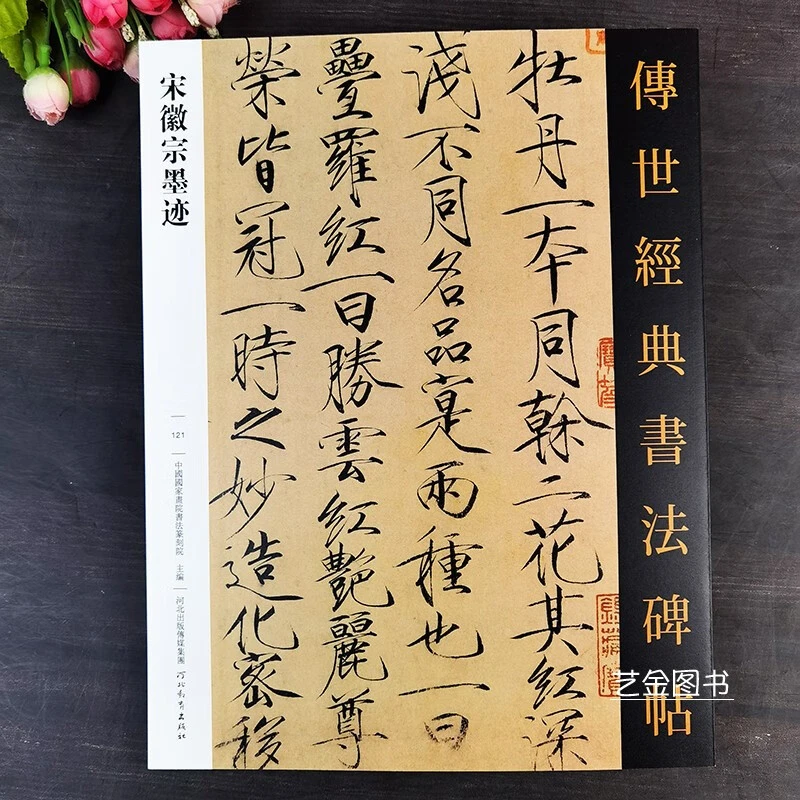 傳世經典書法碑帖
牡丹一本同榦二花其紅深
淺不同名品寔兩種也一曰
疊羅紅一曰勝雲紅艷麗尊
榮皆冠一時之妙造化密移
宋徽宗墨迹
121
中國國家畫院書法篆刻院 主編
河北出版傳媒集團
河北教育出版社
艺金图书